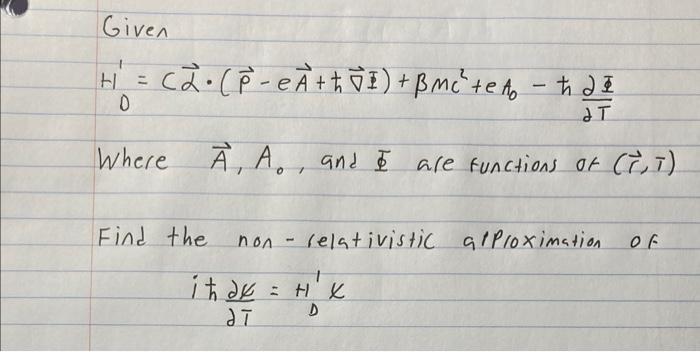 Given
H'_D = c α⃗ · (p⃗ - eA⃗ + ħ ∇⃗Φ) + βmc² + eA₀ - ħ ∂Φ/∂T
Where A⃗, A₀, and Φ are functions of (r⃗, T)
Find the non-relativistic approximation of
iħ ∂ψ/∂T = H'_D ψ